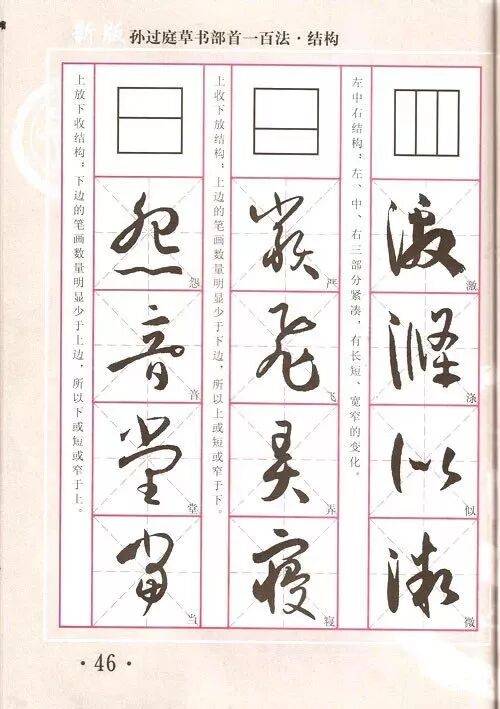 新版 孙过庭草书部首一百法·结构
左中右结构：左、中、右三部分紧凑，有长短、宽窄的变化。
激
涤
似
微
上收下放结构：上边的笔画数量明显少于下边，所以上或短或窄于下。
严
飞
弄
寝
上放下收结构：下边的笔画数量明显少于上边，所以下或短或窄于上。
怨
音
堂
当
·46·